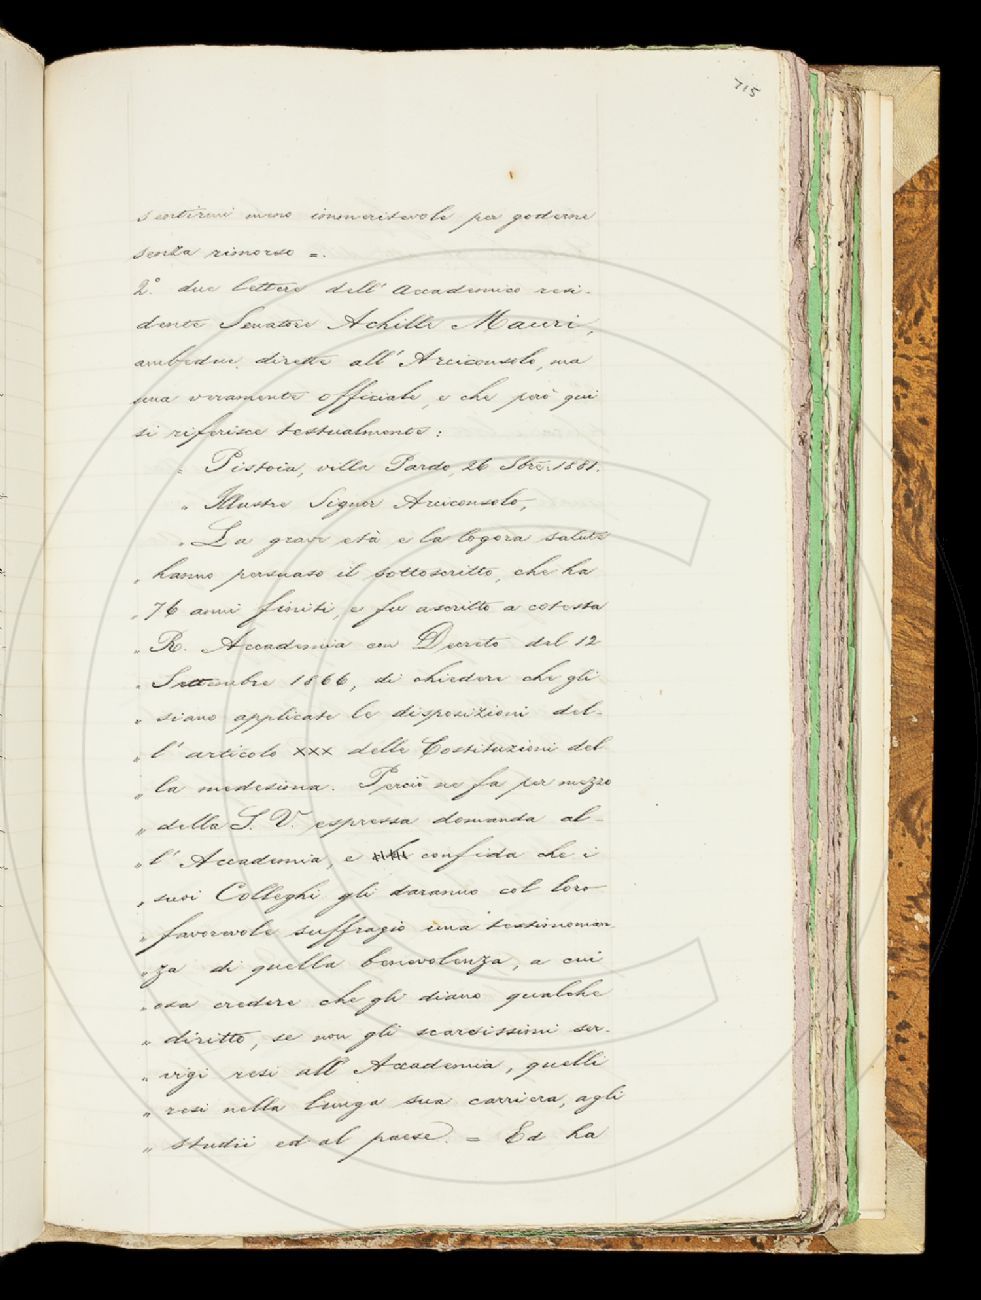 715
sentirmi meno immeritevole per goderne
senza rimorso =.
2º. due lettere dell' Accademico resi-
dente Senatore Achille Mauri,
ambedue dirette all' Arciconsolo, ma
una veramente officiale, e che però qui
si riferisce testualmente:
" Pistoia, villa Pardo, 26 8bre. 1881.
" Illustre Signor Arciconsolo,
" La grave età e la logora salute
" hanno persuaso il sottoscritto, che ha
" 76 anni finiti, e fu ascritto a cotesta
" R. Accademia con Decreto del 12
" Settembre 1866, di chiedere che gli
" siano applicate le disposizioni del-
" l' articolo XXX delle Costituzioni del
" la medesima. Perciò ne fa per mezzo
" della S. V. espressa domanda al-
" l' Accademia, e confida che i
" suoi Colleghi gli daranno col loro
" favorevole suffragio una testimonian
" za di quella benevolenza, a cui
" osa credere che gli diano qualche
" diritto, se non gli scarsissimi ser-
" vigi resi all' Accademia, quelli
" resi nella lunga sua carriera, agli
" studii ed al paese. = Ed ha